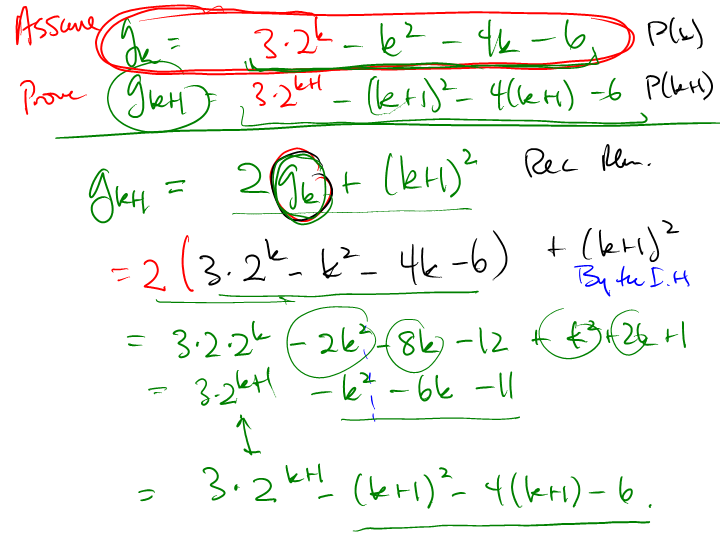 Assume g_k = 3·2^k − k² − 4k − 6 P(k)
Prove g_{k+1} = 3·2^{k+1} − (k+1)² − 4(k+1) − 6 P(k+1)
g_{k+1} = 2 g_k + (k+1)² Rec
= 2 (3·2^k − k² − 4k − 6) + (k+1)²
By the I.H
= 3·2·2^k − 2k² − 8k − 12 + k² + 2k + 1
= 3·2^{k+1} − k² − 6k − 11
↕
= 3·2^{k+1} − (k+1)² − 4(k+1) − 6.